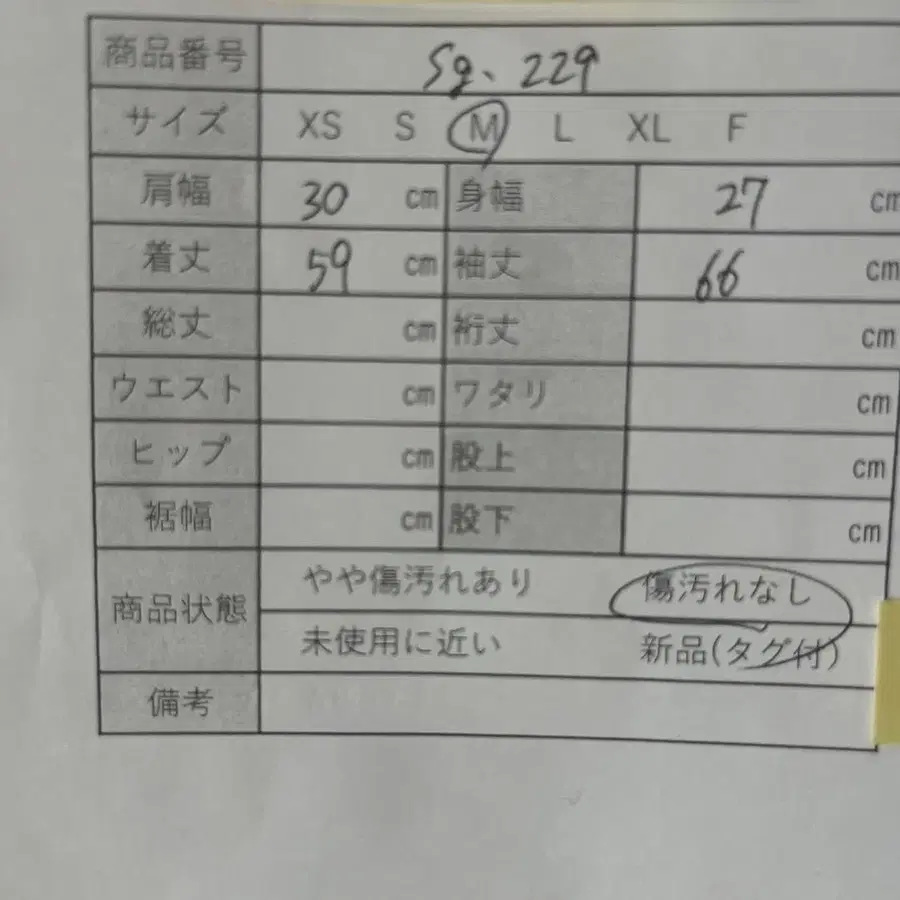 商品番号 Sg. 229
サイズ XS S M L XL F
肩幅 30 cm 身幅 27 cm
着丈 59 cm 袖丈 66 cm
総丈 cm 裄丈 cm
ウエスト cm ワタリ cm
ヒップ cm 股上 cm
裾幅 cm 股下 cm
商品状態 やや傷汚れあり 傷汚れなし
未使用に近い 新品(タグ付)
備考